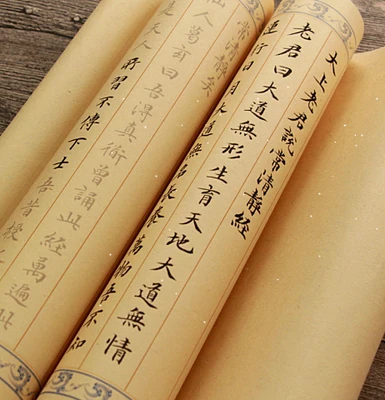 太上老君說常清靜經
老君曰大道無形生育天地大道無情
運行日月大道無名長養萬物吾不知
常清靜矣
仙人葛玄曰吾得真術曾誦此經萬遍此
天人所習不傳下士吾昔授